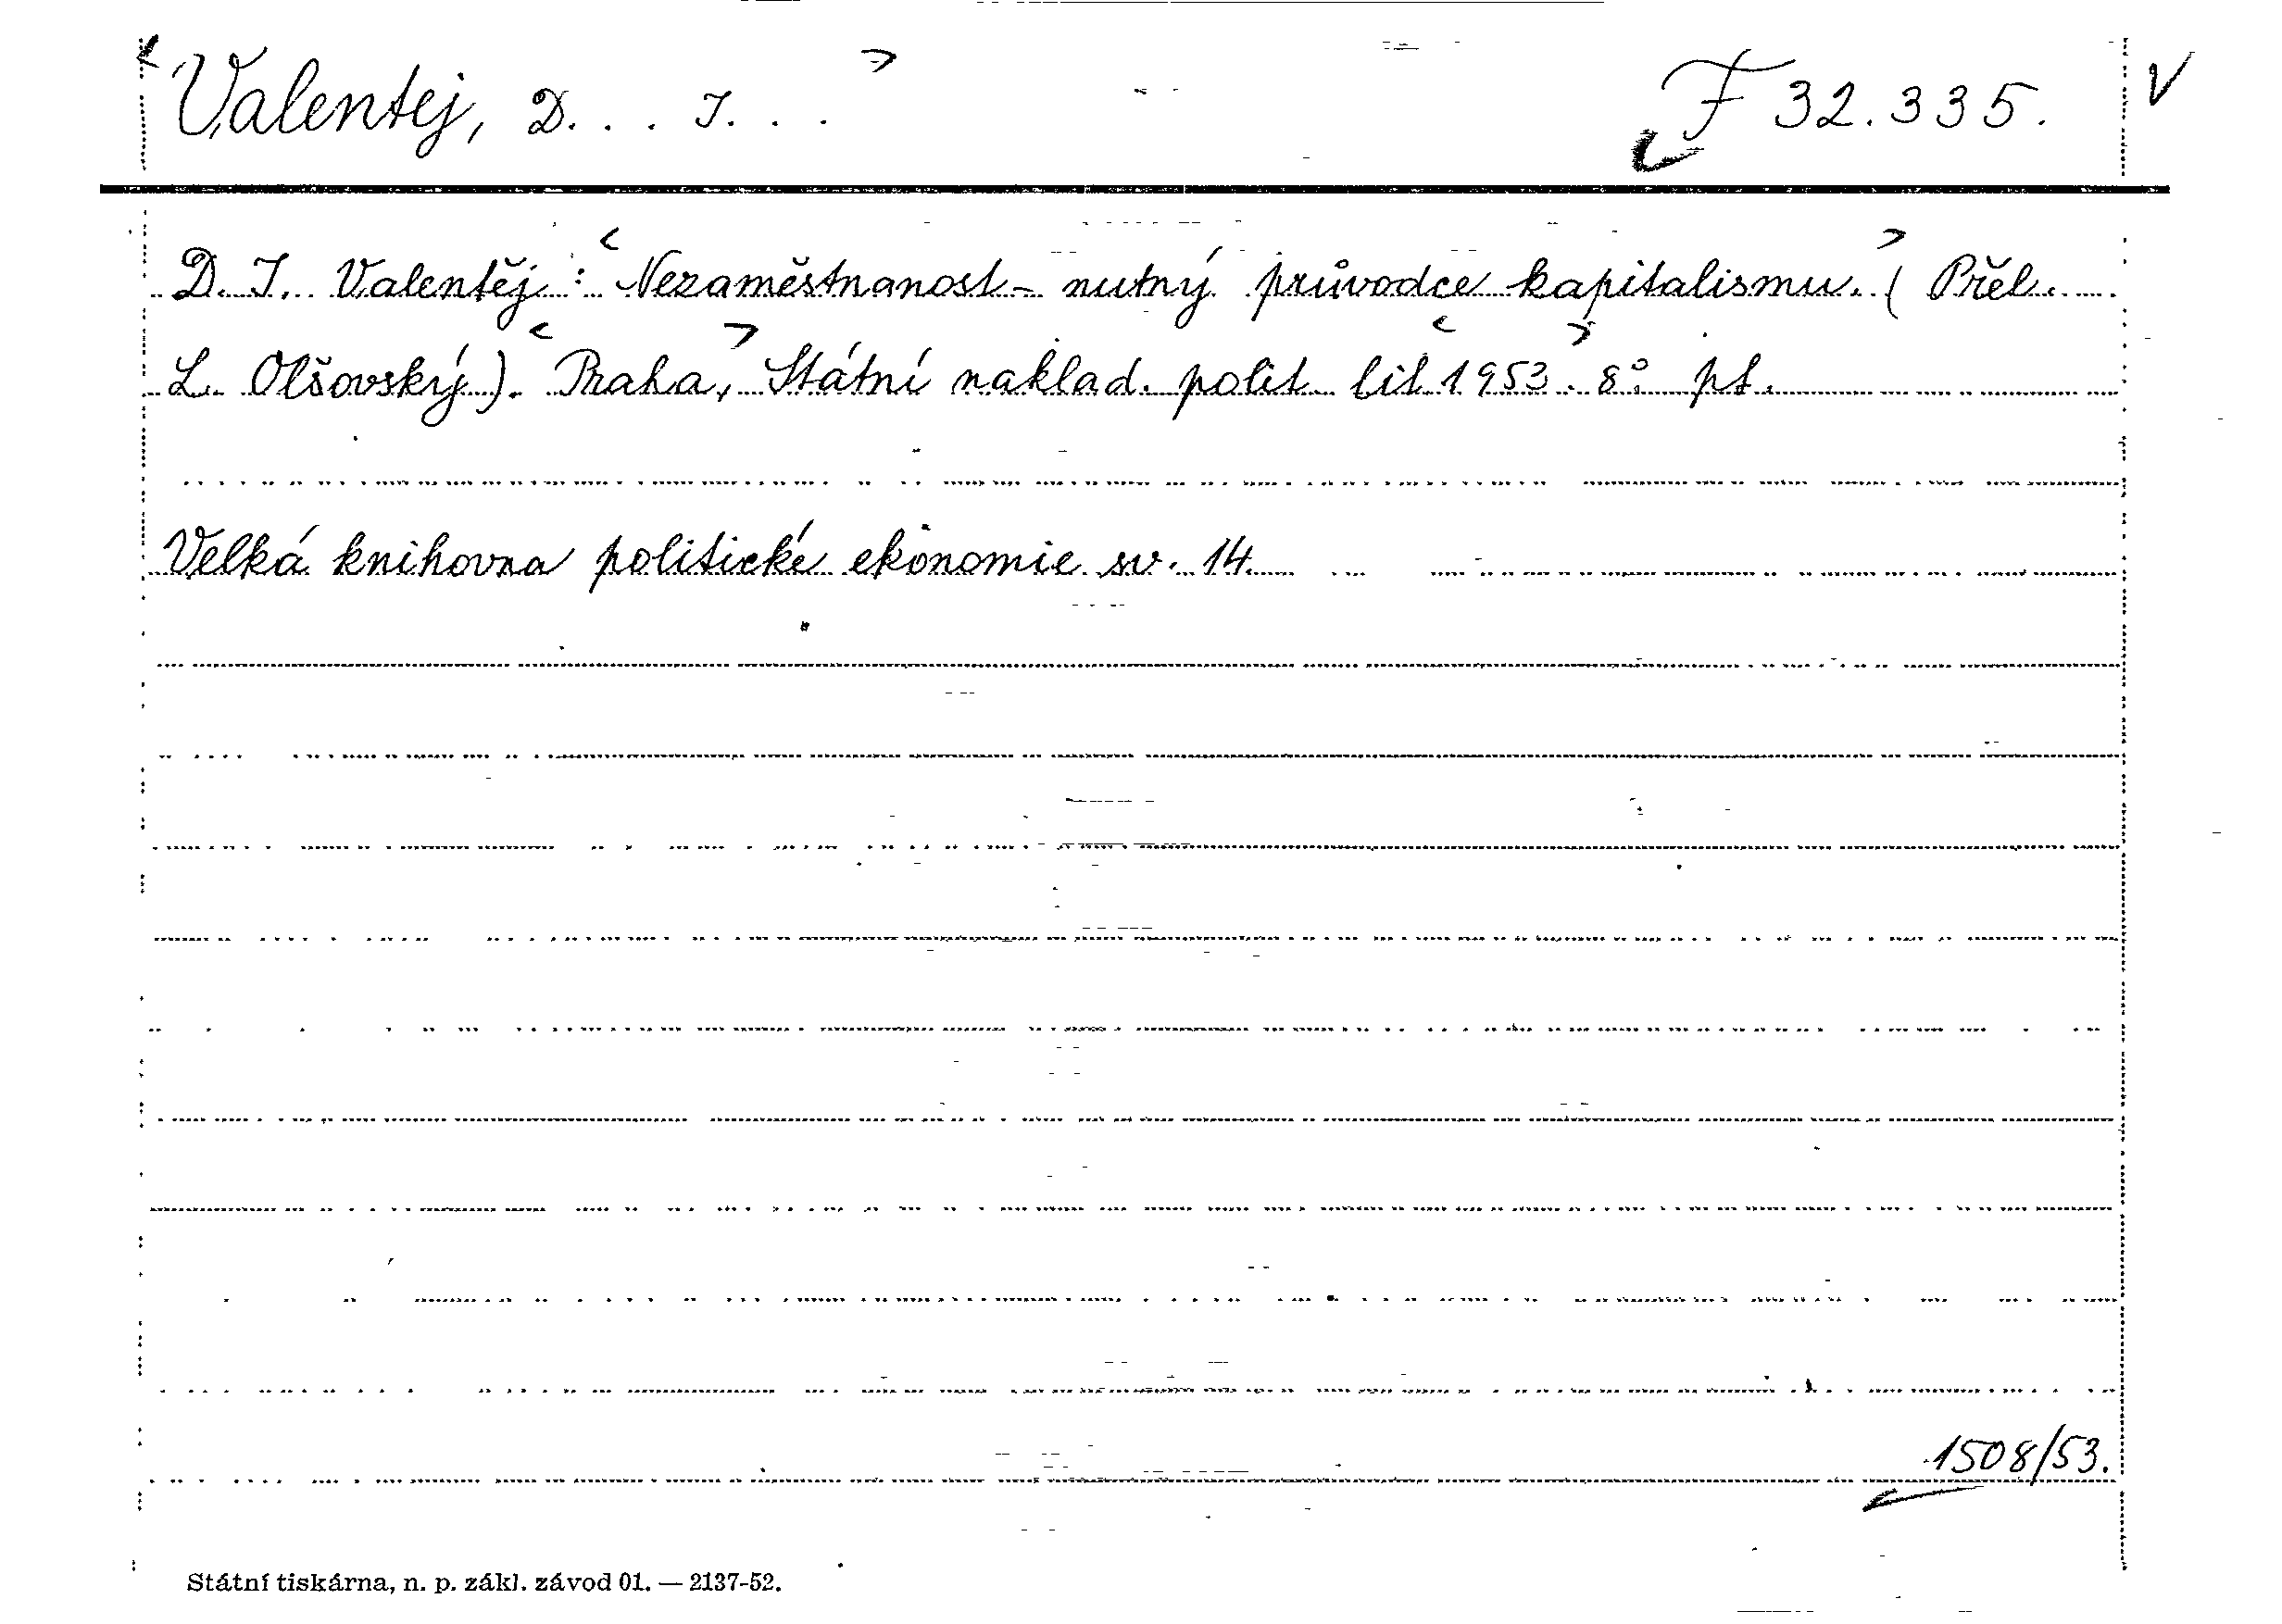 Valentej, D... J...
F 32.335.
V
D. J. Valentěj: Nezaměstnanost - nutný průvodce kapitalismu. (Přel.
L. Olšovský). Praha, Státní naklad. polit. lit. 1953. 8° pt.
Velká knihovna politické ekonomie sv. 14.
1508/53.
Státní tiskárna, n. p. zákl. závod 01. — 2137-52.